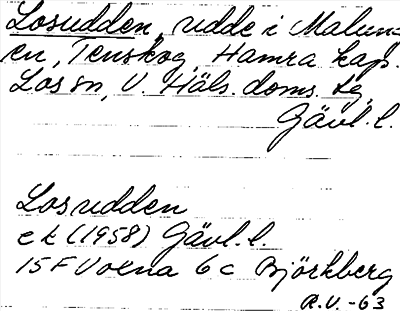 Losudden, udde i Malung-
en, Tenskog, Hamra kap.
Los sn, V. Häls. doms. tg,
Gävl. l.
Losudden
ek (1958) Gävl. l.
15F Voxna 6c Björkberg
R.V. -63